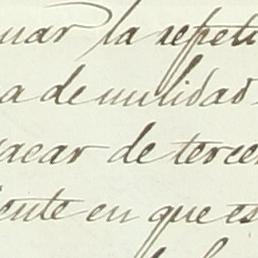 uar la repeti
a de nulidad
acar de tercer
iente en que es